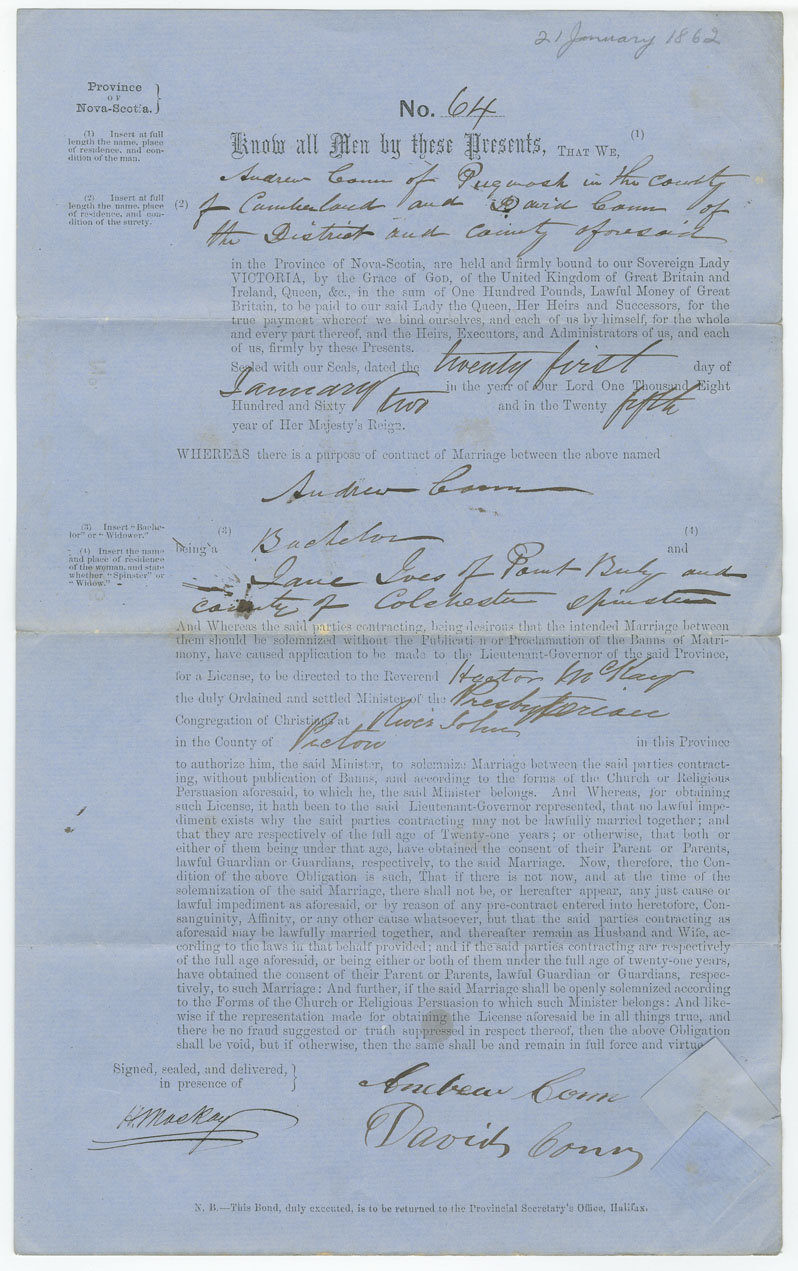 21 January 1862
Province
OF
Nova-Scotia.
No. 64
(1) Insert at full
length the name, place
of residence, and con-
dition of the man.
Know all Men by these Presents, THAT WE, (1)
Andrew Conn of Pugwash in the county
(2) Insert at full
length the name, place
of residence, and con-
dition of the surety.
(2) of Cumberland and David Conn of
the District and county aforesaid
in the Province of Nova-Scotia, are held and firmly bound to our Sovereign Lady
VICTORIA, by the Grace of GOD, of the United Kingdom of Great Britain and
Ireland, Queen, &c., in the sum of One Hundred Pounds, Lawful Money of Great
Britain, to be paid to our said Lady the Queen, Her Heirs and Successors, for the
true payment whereof we bind ourselves, and each of us by himself, for the whole
and every part thereof, and the Heirs, Executors, and Administrators of us, and each
of us, firmly by these Presents.
Sealed with our Seals, dated the twenty first day of
January in the year of Our Lord One Thousand Eight
Hundred and Sixty two and in the Twenty fifth
year of Her Majesty's Reign.
WHEREAS there is a purpose of contract of Marriage between the above named
Andrew Conn
(3) Insert "Bache-
lor" or "Widower."
being a (3) Bachelor and (4)
(4) Insert the name
and place of residence
of the woman, and state
whether "Spinster" or
"Widow."
Jane Ives of Point Buly and
county of Colchester Spinster
And Whereas the said parties contracting, being desirous that the intended Marriage between
them should be solemnized without the Publication or Proclamation of the Banns of Matri-
mony, have caused application to be made to the Lieutenant-Governor of the said Province,
for a License, to be directed to the Reverend Hector McKay
the duly Ordained and settled Minister of the Presbyterian
Congregation of Christians at River John
in the County of Pictou in this Province
to authorize him, the said Minister, to solemnize Marriage between the said parties contract-
ing, without publication of Banns, and according to the forms of the Church or Religious
Persuasion aforesaid, to which he, the said Minister belongs. And Whereas, for obtaining
such License, it hath been to the said Lieutenant-Governor represented, that no lawful impe-
diment exists why the said parties contracting may not be lawfully married together; and
that they are respectively of the full age of Twenty-one years; or otherwise, that both or
either of them being under that age, have obtained the consent of their Parent or Parents,
lawful Guardian or Guardians, respectively, to the said Marriage. Now, therefore, the Con-
dition of the above Obligation is such, That if there is not now, and at the time of the
solemnization of the said Marriage, there shall not be, or hereafter appear, any just cause or
lawful impediment as aforesaid, or by reason of any pre-contract entered into heretofore, Con-
sanguinity, Affinity, or any other cause whatsoever, but that the said parties contracting as
aforesaid may be lawfully married together, and thereafter remain as Husband and Wife, ac-
cording to the laws in that behalf provided; and if the said parties contracting are respectively
of the full age aforesaid, or being either or both of them under the full age of twenty-one years,
have obtained the consent of their Parent or Parents, lawful Guardian or Guardians, respec-
tively, to such Marriage: And further, if the said Marriage shall be openly solemnized according
to the Forms of the Church or Religious Persuasion to which such Minister belongs: And like-
wise if the representation made for obtaining the License aforesaid be in all things true, and
there be no fraud suggested or truth suppressed in respect thereof, then the above Obligation
shall be void, but if otherwise, then the same shall be and remain in full force and virtue.
Signed, sealed, and delivered,
in presence of
H. MacKay
Andrew Conn
David Conn
N. B.—This Bond, duly executed, is to be returned to the Provincial Secretary's Office, Halifax.